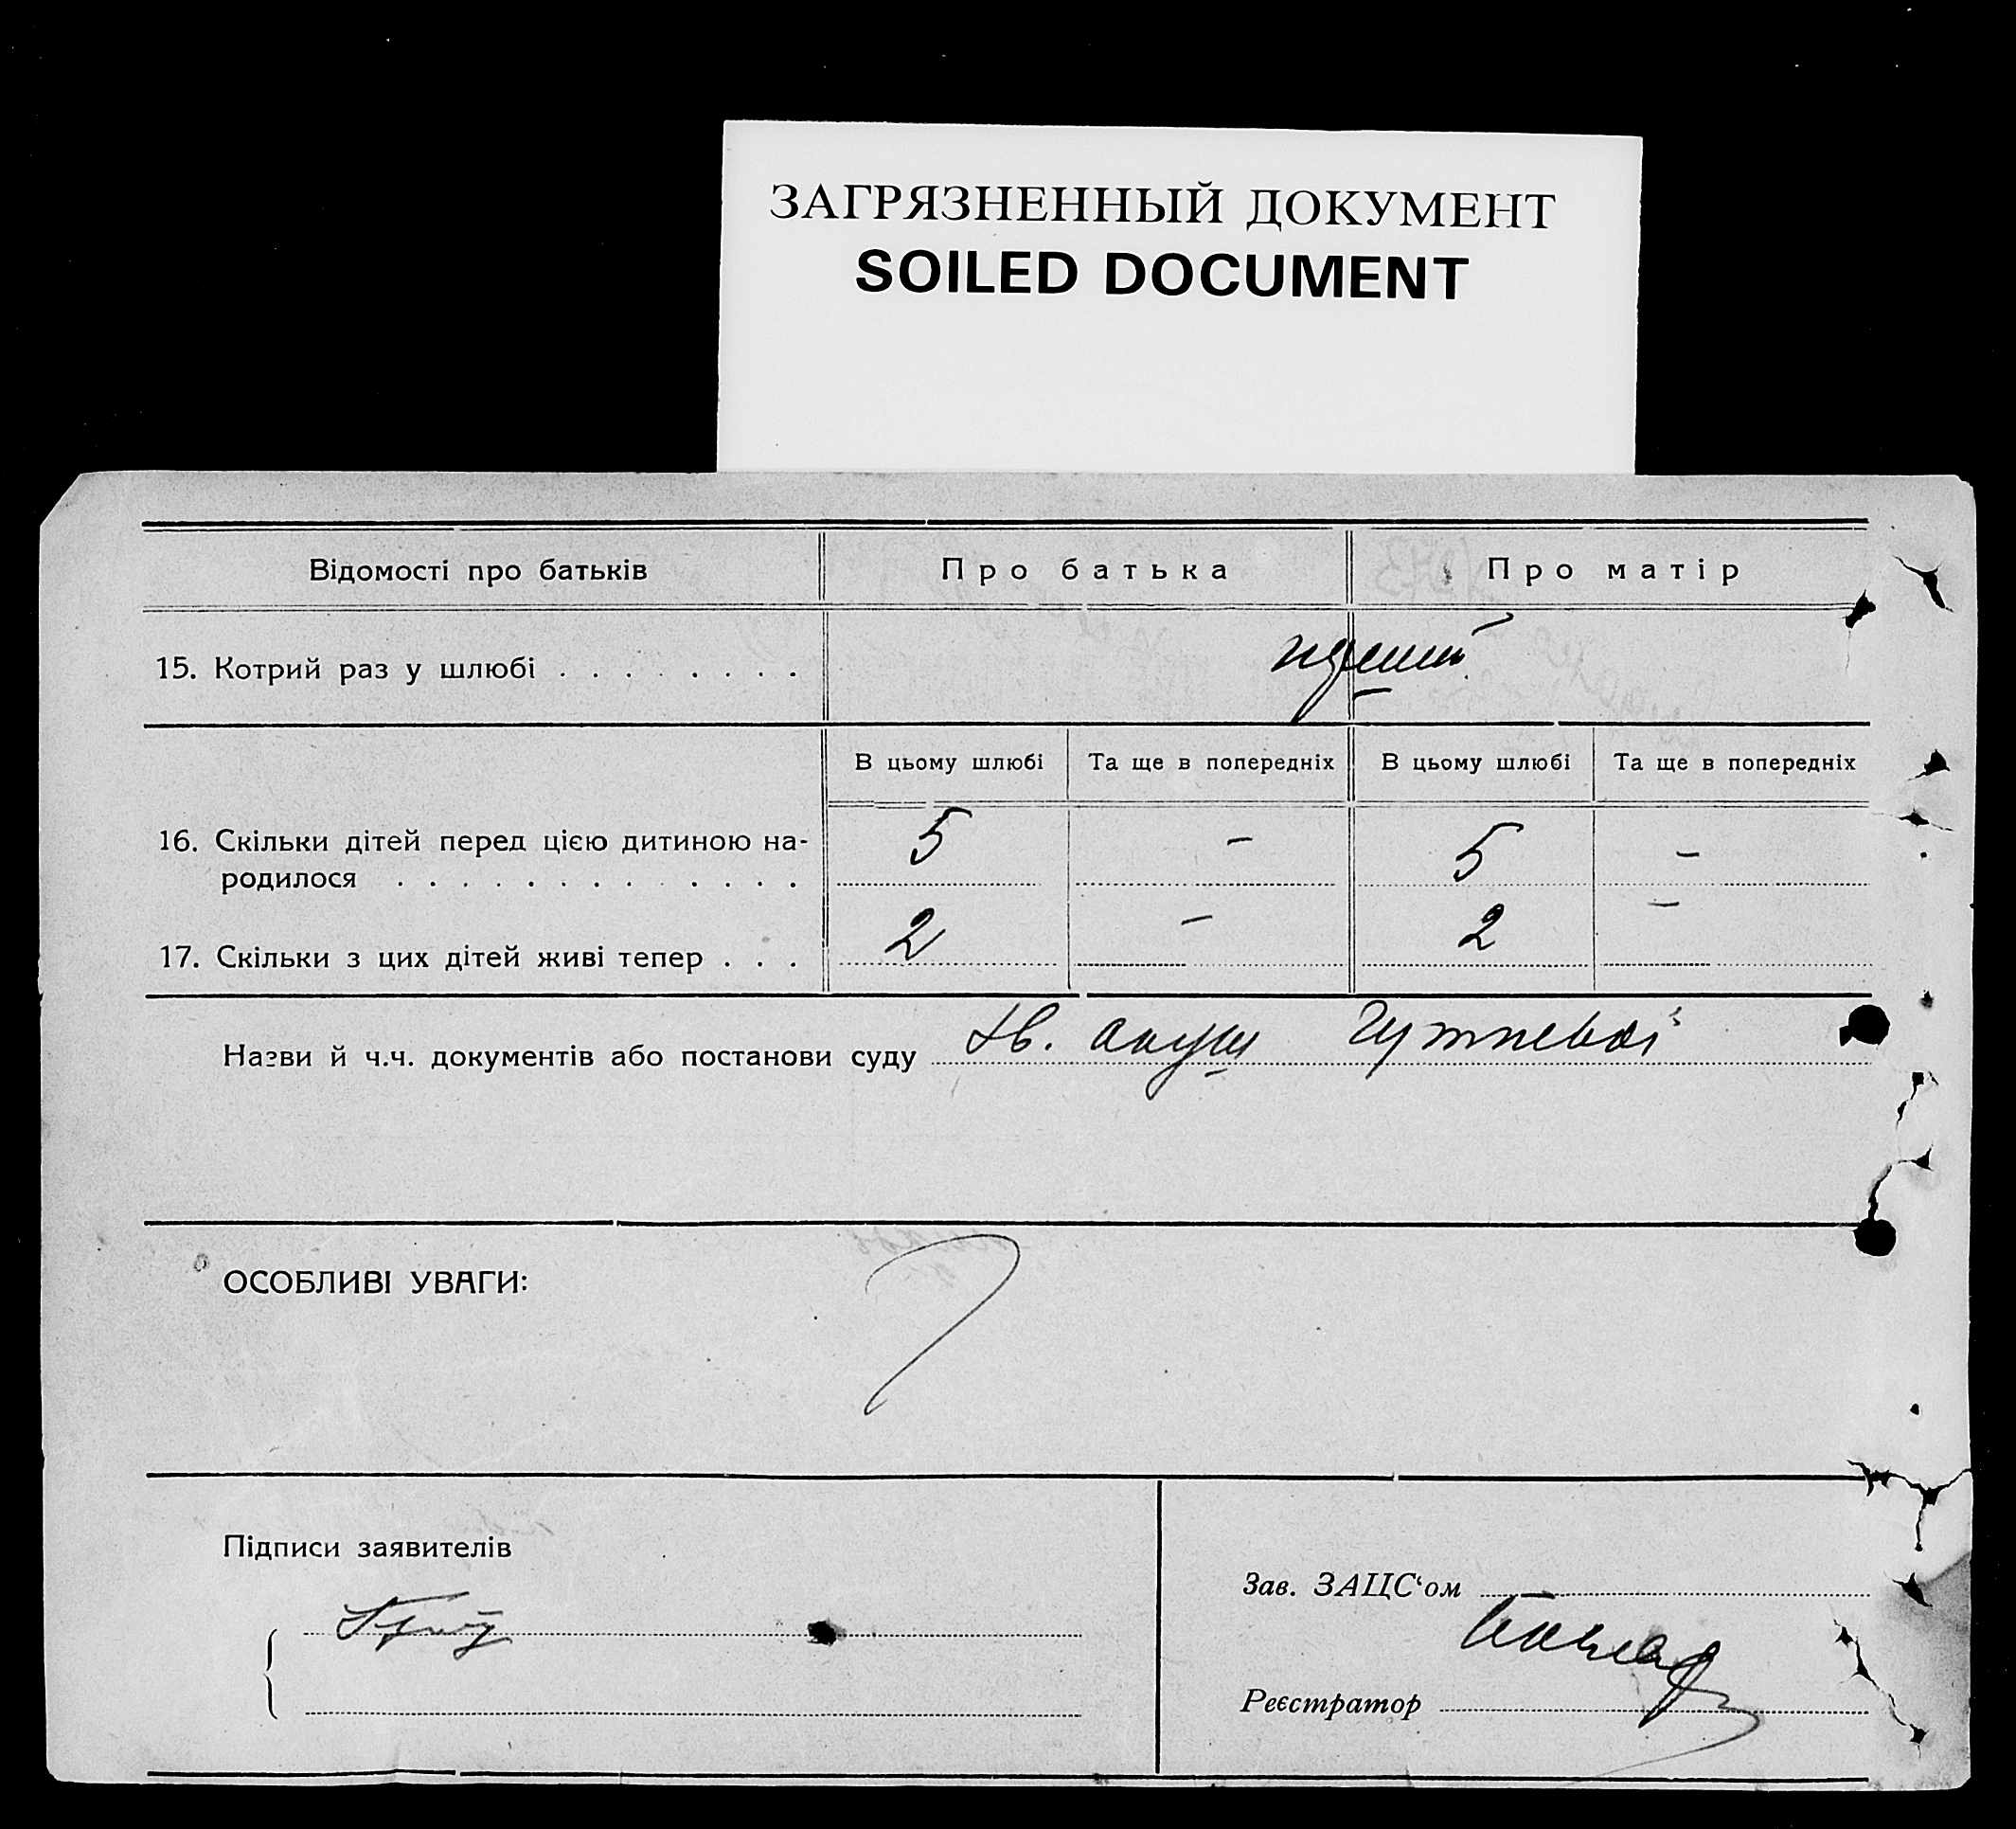 ЗАГРЯЗНЕННЫЙ ДОКУМЕНТ
SOILED DOCUMENT
Відомості про батьків Про батька Про матір
15. Котрий раз у шлюбі . . . . . . . .
В цьому шлюбі Та ще в попередніх В цьому шлюбі Та ще в попередніх
16. Скільки дітей перед цією дитиною на- 5 – 5 –
родилося . . . . . . . . . . . . .
17. Скільки з цих дітей живі тепер . . . 2 – 2 –
Назви й ч.ч. документів або постанови суду
ОСОБЛИВІ УВАГИ:
Підписи заявителів
Зав. ЗАЦС'ом
Реєстратор